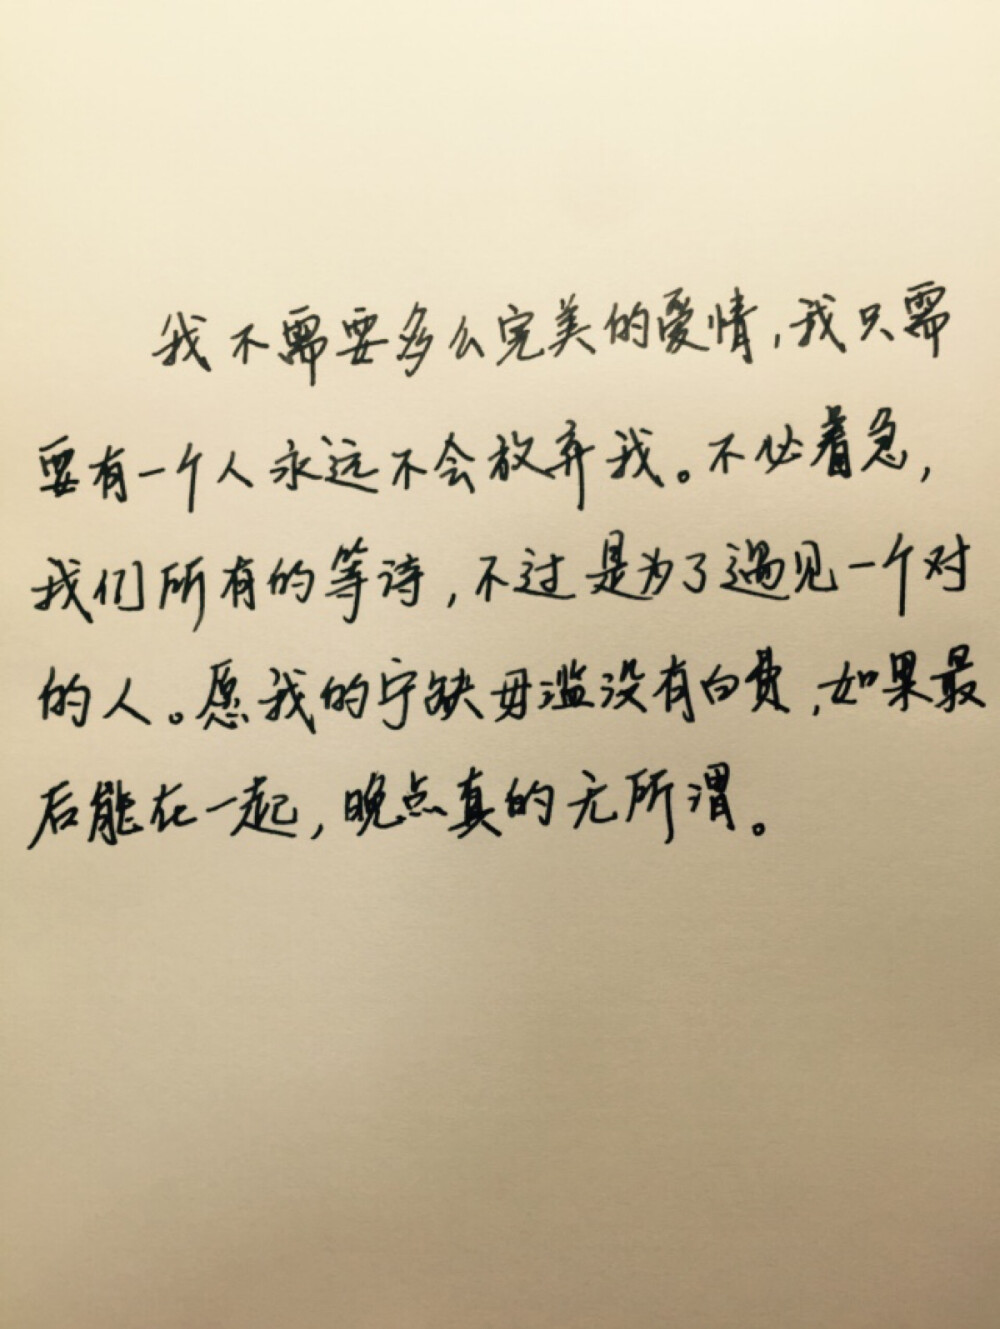 我不需要多么完美的爱情，我只需
要有一个人永远不会放弃我。不必着急，
我们所有的等诗，不过是为了遇见一个对
的人。愿我的宁缺毋滥没有白费，如果最
后能在一起，晚点真的无所谓。